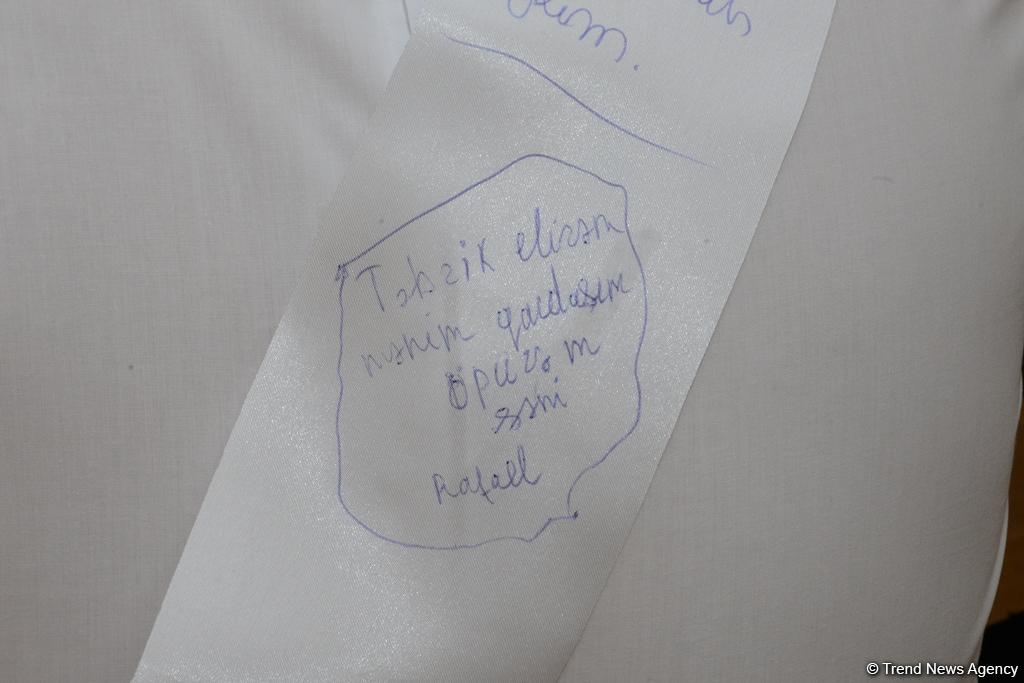 Təbrik elirəm
mənim qardaşım
öpürəm
səni
Rafael
© Trend News Agency